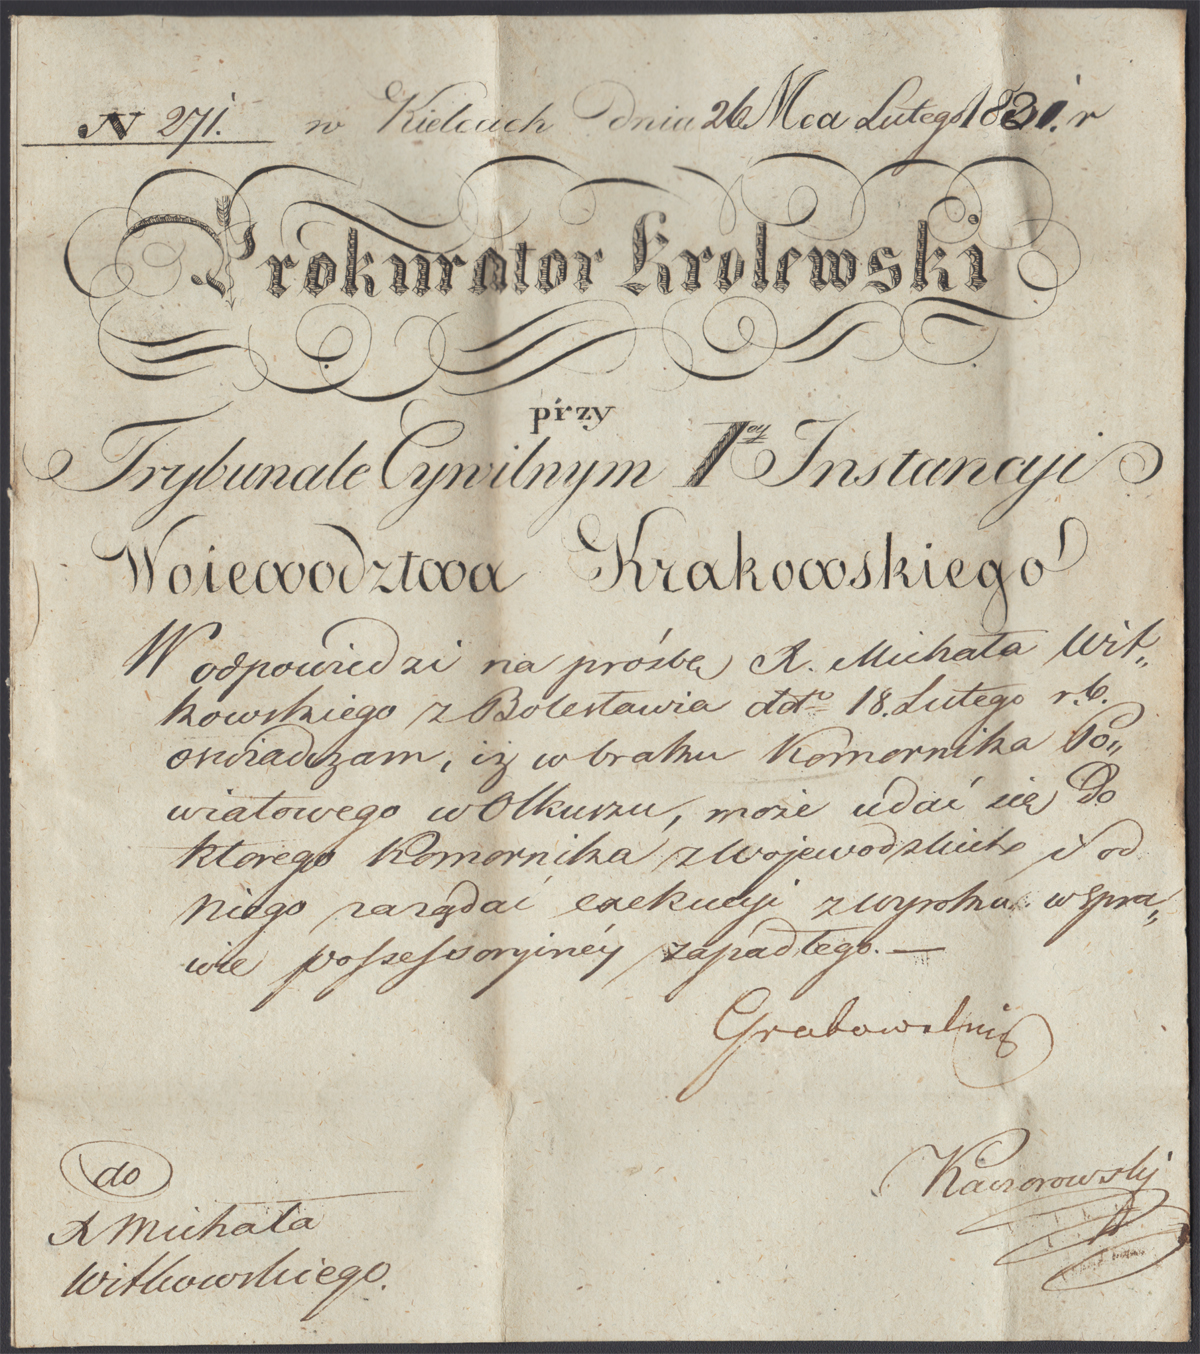 N 271. w Kielcach Dnia 26 Mca Lutego 1831. r
Prokurator Krolewski
przy
Trybunale Cywilnym 1ey Instancyi
Woiewodztwa Krakowskiego
W odpowiedzi na prośbę A. Michała Wit„
kowskiego z Bolesławia ddto 18. Lutego r. b.
oswiadczam, iż w braku Komornika Po„
wiatowego w Olkuszu, może udać się do
ktorego Komornika z Wojewodzkich i od
niego zarządać exekucyi z wyroku w spra„
wie possessoryinéy zapadłego. —
Grabowski
do
A Michała
Witkowskiego.
Kaczorowski